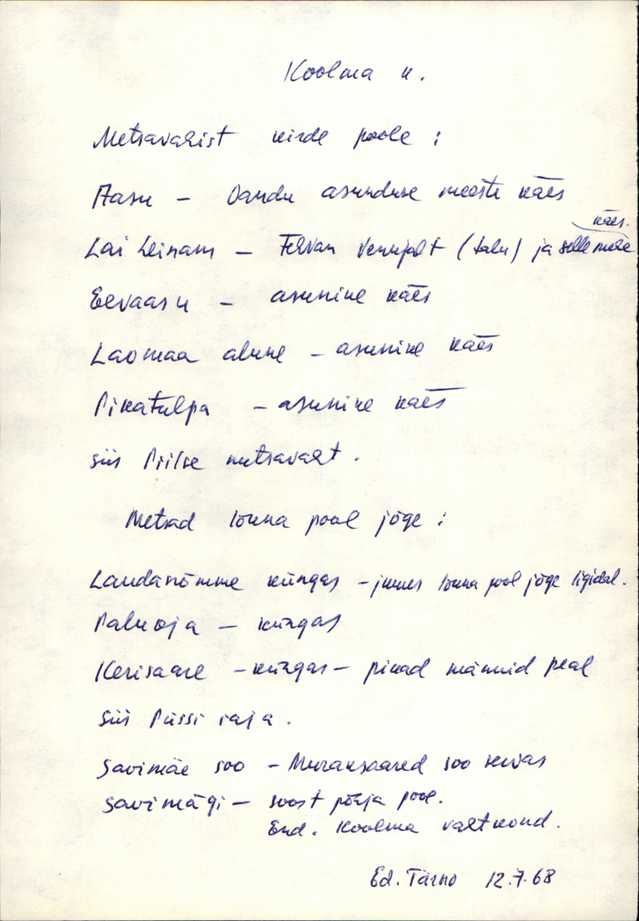 Koolma k.
Metsavahist kirde poole :
Aasu – Oandu asunduse meeste käes
käes.
Lai Leinam – Tervan Vennipalt (talu) ja selle mehe
Eevaasu – asunike käes
Laomaa alune – asunike käes
Pikatulpa – asunike käes
siis Piilse metsavaht.
Metsad lõuna pool jõge :
Laudanõmme küngas – jumes lõuna pool jõge ligidal.
Paluoja – küngas
Kerisaare – küngas – pikad männid peal
siis Püssi raja.
Savimäe soo – Muraksaared soo servas
Savimägi – soost põhja pool.
End. Koolma vahtkond.
Ed. Tärno 12.7.68